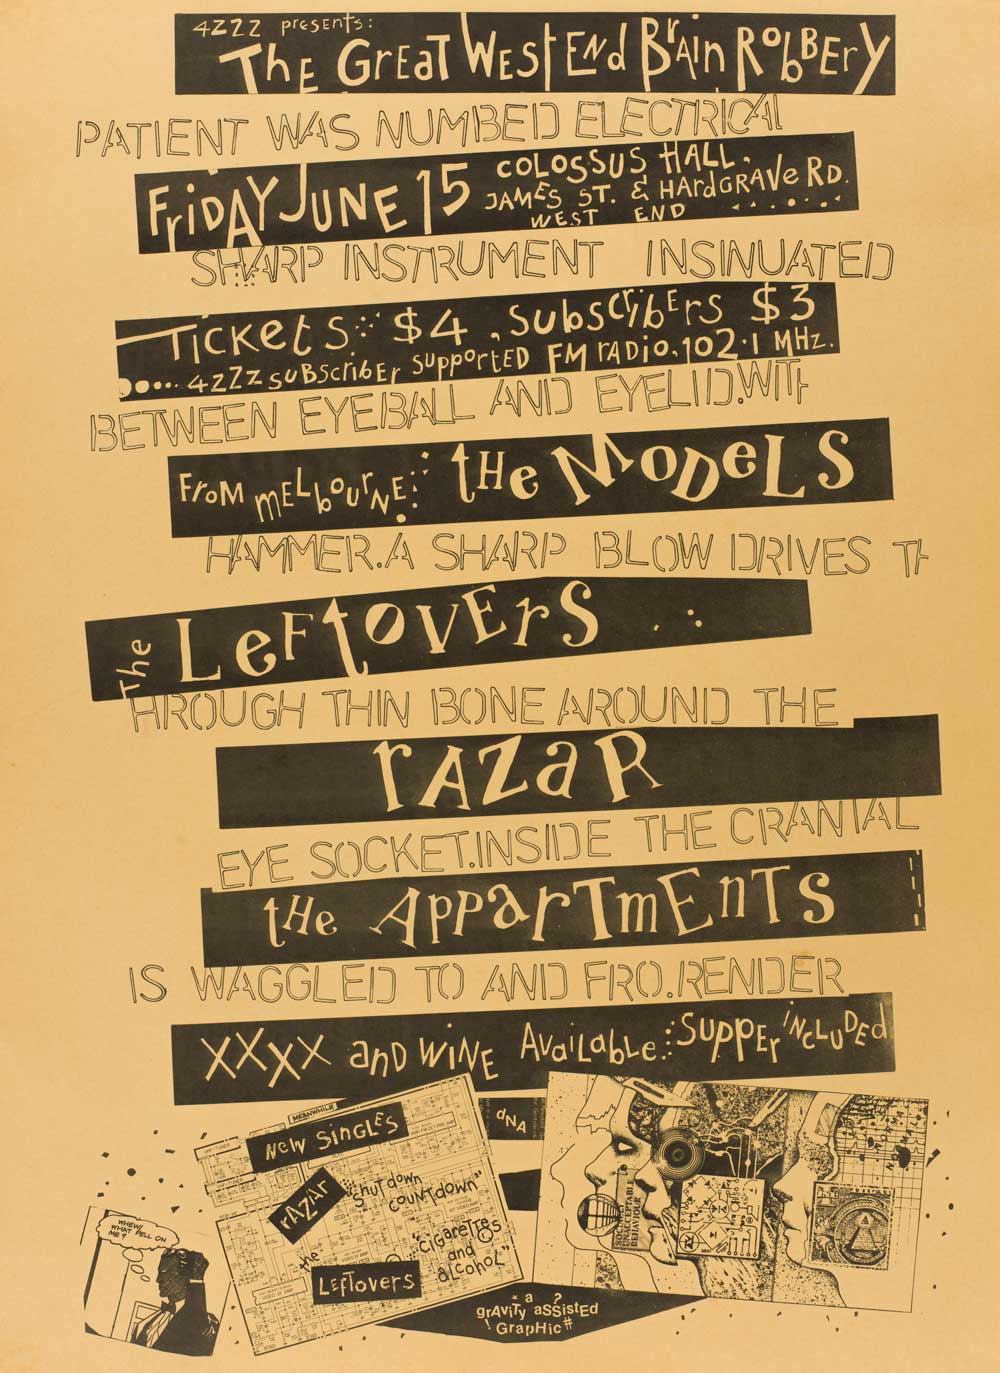 4ZZZ presents:
The Great West End Brain Robbery
PATIENT WAS NUMBED ELECTRICAL
Friday June 15
COLOSSUS HALL,
JAMES ST. & HARDGRAVE RD.
WEST END
SHARP INSTRUMENT INSINUATED
Tickets: $4, Subscribers $3
4ZZZ subscriber supported FM radio. 102.1 MHz.
BETWEEN EYEBALL AND EYELID.WITH
From Melbourne: the Models
HAMMER.A SHARP BLOW DRIVES TH
The Leftovers
HROUGH THIN BONE AROUND THE
rAZaR
EYE SOCKET.INSIDE THE CRANIAL
the Appartments
IS WAGGLED TO AND FRO.RENDER
XXXX and wine Available: Supper included
MEANWHILE
New Singles
rAZAr
"shut down
countdown"
the
Leftovers
"cigarettes
and
alcohol"
dNA
WHEW!
WHAT FELL ON
ME?
UNACCEPTABLE
BEHAVIOUR
a
gravity assisted
Graphic